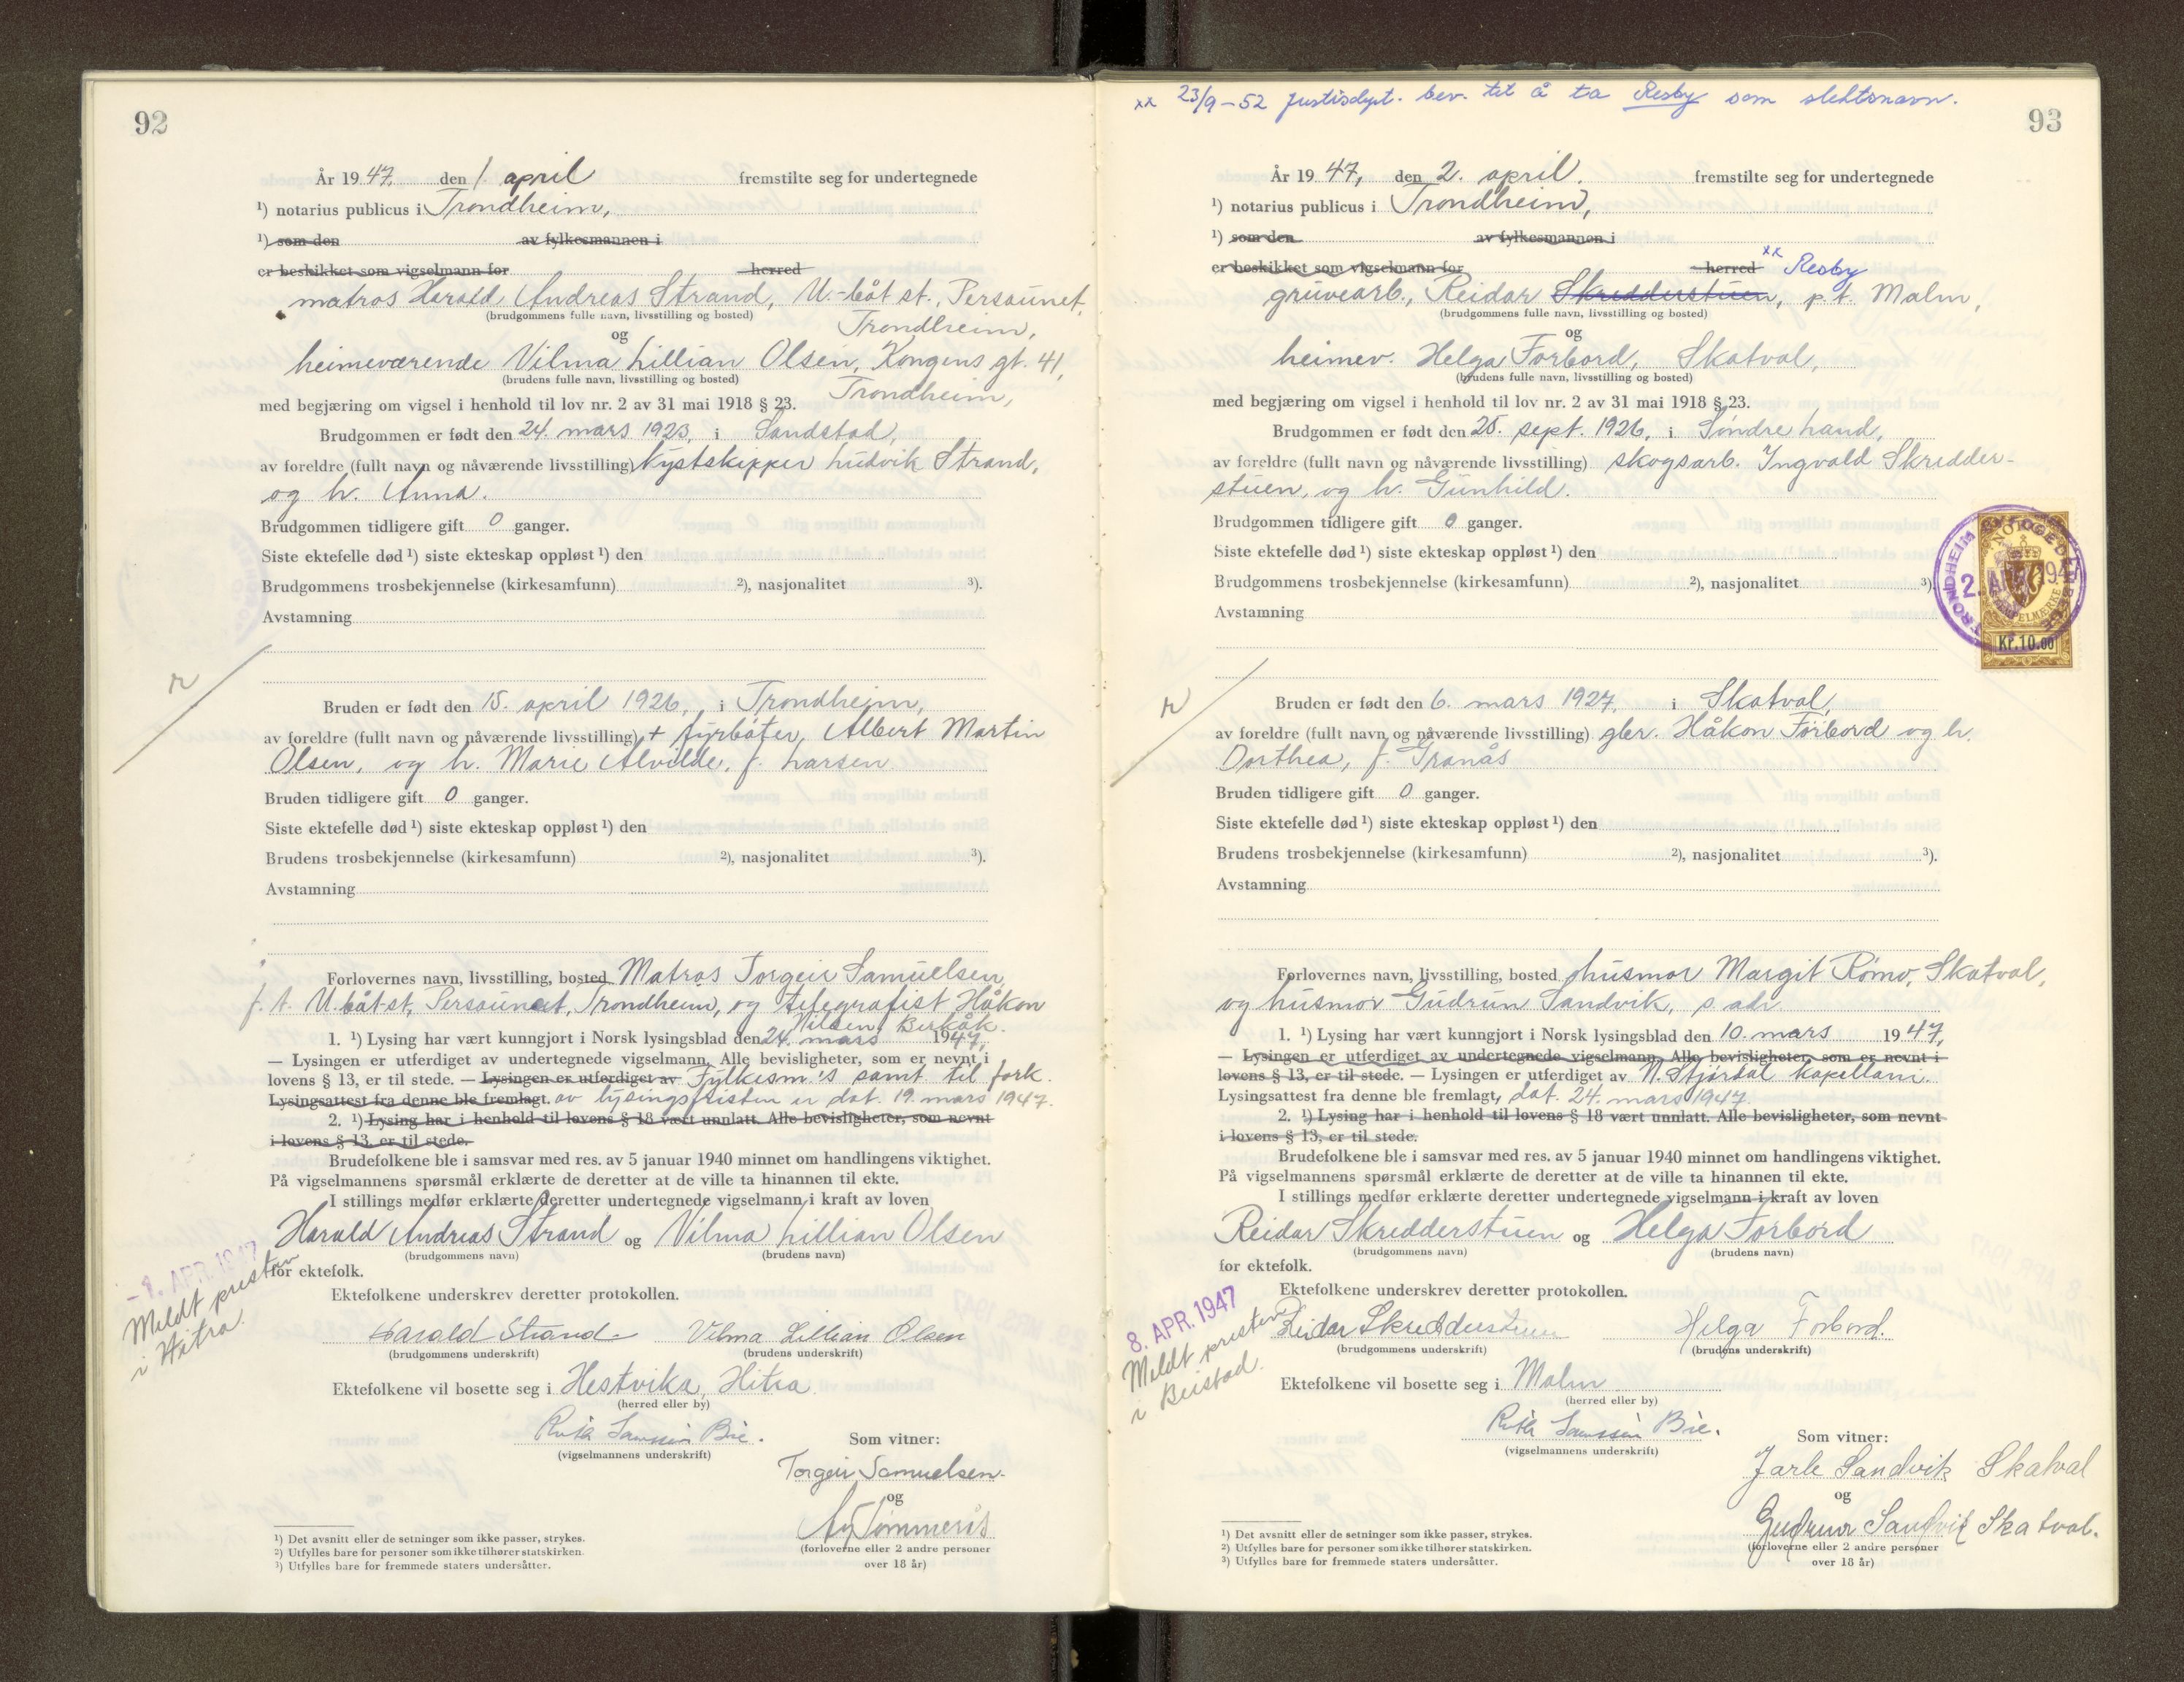 92
År 1947. den 1 april fremstilte seg for undertegnede
¹) notarius publicus i Trondheim,
¹) som den av fylkesmannen i
er beskikket som vigselmann for herred
matros Harald Andreas Strand, U.-båt st., Persaunet,
(brudgommens fulle navn, livsstilling og bosted) Trondheim,
og
heimeværende Vilma Lillian Olsen, Kongens gt. 41,
(brudens fulle navn, livsstilling og bosted) Trondheim,
med begjæring om vigsel i henhold til lov nr. 2 av 31 mai 1918 § 23.
Brudgommen er født den 24. mars 1923, i Sandstad,
av foreldre (fullt navn og nåværende livsstilling) kystskipper Ludvik Strand,
og h. Anna.
Brudgommen tidligere gift 0 ganger.
Siste ektefelle død ¹) siste ekteskap oppløst ¹) den
Brudgommens trosbekjennelse (kirkesamfunn) ²), nasjonalitet ³).
Avstamning
Bruden er født den 15. april 1926, i Trondheim,
av foreldre (fullt navn og nåværende livsstilling) + fyrbøter Albert Martin
Olsen, og h. Marie Alvilde, f. Larsen
Bruden tidligere gift 0 ganger.
Siste ektefelle død ¹) siste ekteskap oppløst ¹) den
Brudens trosbekjennelse (kirkesamfunn) ²), nasjonalitet ³).
Avstamning
Forlovernes navn, livsstilling, bosted Matros Torgeir Samuelsen
f. t. U.båt-st, Persaunet, Trondheim, og telegrafist Håkon
Nilsen, Berkåk.
1. ¹) Lysing har vært kunngjort i Norsk lysingsblad den 24. mars 1947,
— Lysingen er utferdiget av undertegnede vigselmann. Alle bevisligheter, som er nevnt i
lovens § 13, er til stede. — Lysingen er utferdiget av Fylkesm's samt til fork.
Lysingsattest fra denne ble fremlagt. av lysingsfristen er dat. 19. mars 1947.
2. ¹) Lysing har i henhold til lovens § 18 vært unnlatt. Alle bevisligheter, som nevnt
i lovens § 13, er til stede.
Brudefolkene ble i samsvar med res. av 5 januar 1940 minnet om handlingens viktighet.
På vigselmannens spørsmål erklærte de deretter at de ville ta hinannen til ekte.
I stillings medfør erklærte deretter undertegnede vigselmann i kraft av loven
Harald Andreas Strand og Vilma Lillian Olsen
(brudgommens navn) (brudens navn)
for ektefolk.
-1. APR. 1947
Meldt presten
i Hitra.
Ektefolkene underskrev deretter protokollen.
Harald Strand Vilma Lillian Olsen
(brudgommens underskrift) (brudens underskrift)
Ektefolkene vil bosette seg i Hestvika, Hitra
(herred eller by)
Bie.
(vigselmannens underskrift)
Som vitner:
Torgeir Samuelsen.
og
(forloverne eller 2 andre personer
over 18 år)
¹) Det avsnitt eller de setninger som ikke passer, strykes.
²) Utfylles bare for personer som ikke tilhører statskirken.
³) Utfylles bare for fremmede staters undersåtter.
xx 23/9-52 Justisdept. bev. til å ta Resby som slektsnavn.
93
År 1947, den 2. april. fremstilte seg for undertegnede
¹) notarius publicus i Trondheim,
¹) som den av fylkesmannen i
er beskikket som vigselmann for herred xx Resby
gruvearb., Reidar Skredderstuen, p.t. Malm,
(brudgommens fulle navn, livsstilling og bosted)
og
heimev. Helga Forbord, Skatval,
(brudens fulle navn, livsstilling og bosted)
med begjæring om vigsel i henhold til lov nr. 2 av 31 mai 1918 § 23.
Brudgommen er født den 25. sept. 1926, i Søndre Land,
av foreldre (fullt navn og nåværende livsstilling) skogsarb. Ingvald Skredder-
stuen, og h. Gunhild.
Brudgommen tidligere gift 0 ganger.
Siste ektefelle død ¹) siste ekteskap oppløst ¹) den
Brudgommens trosbekjennelse (kirkesamfunn) ²), nasjonalitet ³).
Avstamning
TRONDHEIM BYFOGEDEMBEDE
2. APR. 1947
NORGE
STEMPELMÆRKE
Kr. 10.00
Bruden er født den 6. mars 1927, i Skatval,
av foreldre (fullt navn og nåværende livsstilling) gbr. Håkon Forbord og h.
Dorthea, f. Granås
Bruden tidligere gift 0 ganger.
Siste ektefelle død ¹) siste ekteskap oppløst ¹) den
Brudens trosbekjennelse (kirkesamfunn) ²), nasjonalitet ³).
Avstamning
Forlovernes navn, livsstilling, bosted husmor Margit Rømo, Skatval,
og husmor Gudrun Sandvik, s. adr.
1. ¹) Lysing har vært kunngjort i Norsk lysingsblad den 10. mars 1947,
— Lysingen er utferdiget av undertegnede vigselmann. Alle bevisligheter, som er nevnt i
lovens § 13, er til stede. — Lysingen er utferdiget av N. Stjørdal kapellani.
Lysingsattest fra denne ble fremlagt, dat. 24. mars 1947.
2. ¹) Lysing har i henhold til lovens § 18 vært unnlatt. Alle bevisligheter, som nevnt
i lovens § 13, er til stede.
Brudefolkene ble i samsvar med res. av 5 januar 1940 minnet om handlingens viktighet.
På vigselmannens spørsmål erklærte de deretter at de ville ta hinannen til ekte.
I stillings medfør erklærte deretter undertegnede vigselmann i kraft av loven
Reidar Skredderstuen og Helga Forbord
(brudgommens navn) (brudens navn)
for ektefolk.
8. APR. 1947
Meldt presten
i Beistad.
Ektefolkene underskrev deretter protokollen.
Reidar Skredderstuen Helga Forbord.
(brudgommens underskrift) (brudens underskrift)
Ektefolkene vil bosette seg i Malm
(herred eller by)
Bie.
(vigselmannens underskrift)
Som vitner:
Jarle Sandvik Skatval
og
Gudrun Sandvik Skatval.
(forloverne eller 2 andre personer
over 18 år)
¹) Det avsnitt eller de setninger som ikke passer, strykes.
²) Utfylles bare for personer som ikke tilhører statskirken.
³) Utfylles bare for fremmede staters undersåtter.